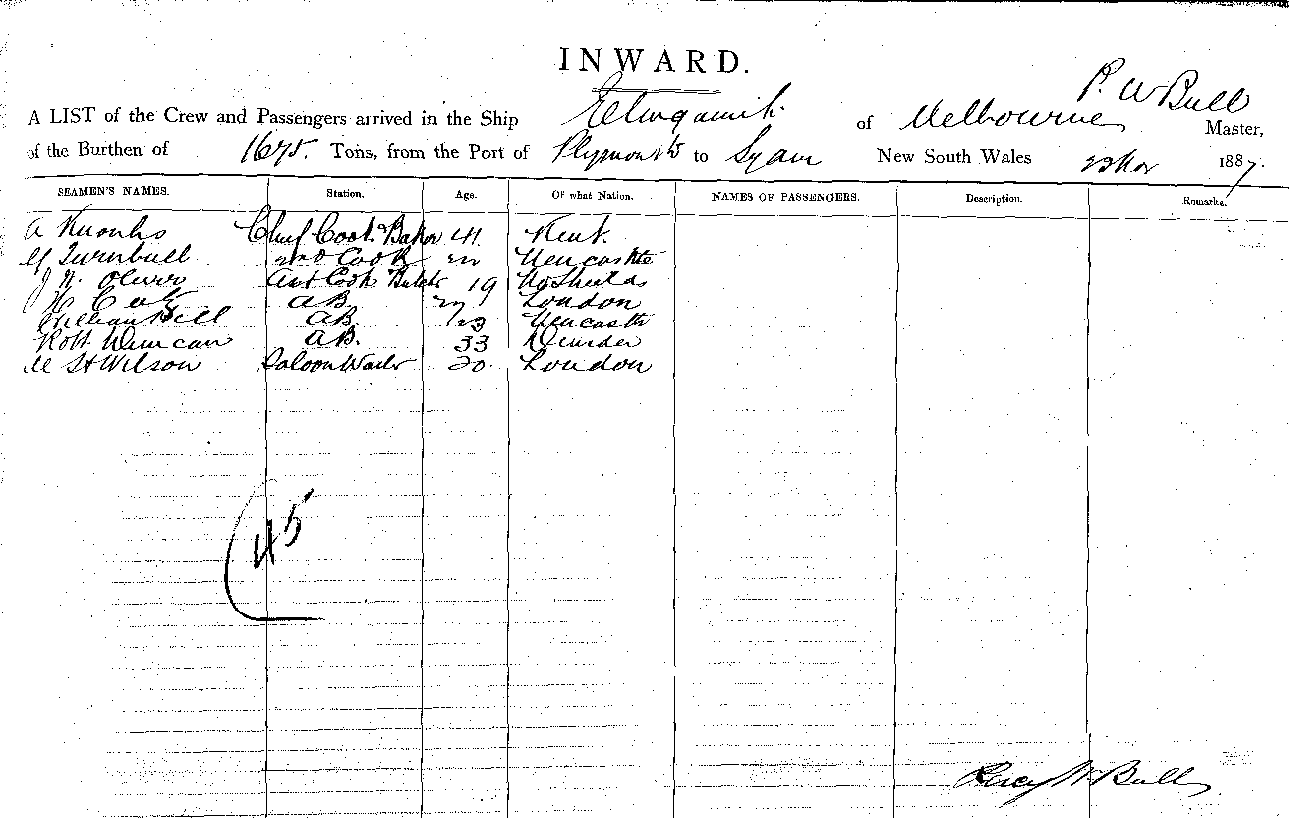 INWARD.
P. W Bull
A LIST of the Crew and Passengers arrived in the Ship Elingamite of Melbourne Master,
of the Burthen of 1675. Tons, from the Port of Plymouth to Sydney New South Wales 23 Nov 1887.
SEAMEN'S NAMES. Station. Age. Of what Nation. NAMES OF PASSENGERS. Description. Remarks.
A Chief Cook & Baker 41 Kent.
Turnbull 2nd Cook Newcastle
J Ast Cook Butcher 19 No Shields
H AB London
William Bell AB 23 Newcastle
Robt Duncan AB. 33 Dundee
Wilson Saloon Waiter 20. London
45
Percy W Bull